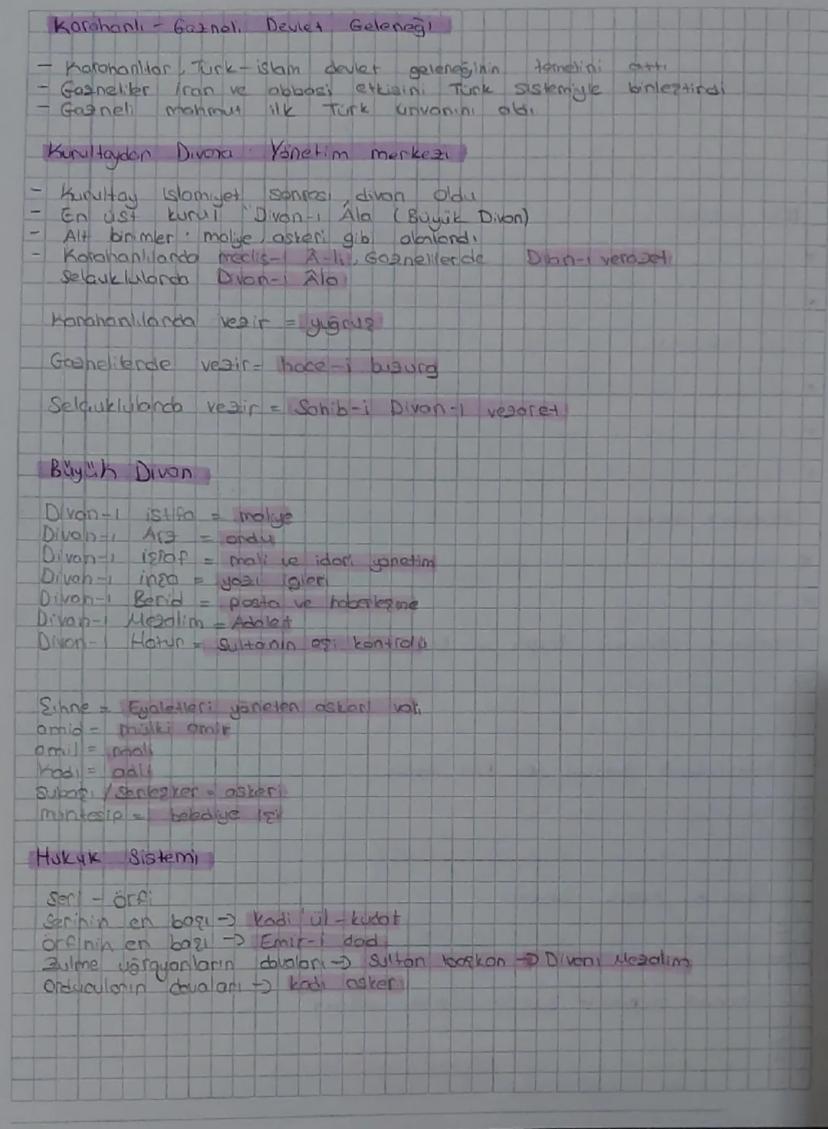 Karahanlı - Gazneli Devlet Geleneği
- Karahanlılar, Türk-islam devlet geleneğinin temelini attı
- Gazneliler iran ve abbasi etkisini Türk sistemiyle birleştirdi
- Gazneli mahmut ilk Türk ünvanını aldı
Kurultaydan Divana Yönetim merkezi
- Kurultay islamiyet sonrası divan oldu
- En üst kurul Divan-ı Âla (Büyük Divan)
- Alt birimler: maliye, askeri gibi alanlandı
- Karahanlılarda meclis-i Â-li, Gaznelilerde Divan-ı vezaret
Selçuklularda Divan-ı Âla
Karahanlılarda vezir = yuğruş
Gaznelilerde vezir = hace-i buzurg
Selçuklularda vezir = Sahib-i Divan-ı vezaret
Büyük Divan
Divan-ı istifa = maliye
Divan-ı Arz = ordu
Divan-ı işraf = mali ve idari yönetim
Divan-ı inşa = yazı işleri
Divan-ı Berid = posta ve haberleşme
Divan-ı Mezalim = Adalet
Divan-ı Hatun = Sultanın eşi kontrolü
Şıhne = Eyaletleri yöneten askeri vali
amid = mülki amir
amil = mali
kadı = adli
Subaşı / Serleşker = askeri
muhtesip = belediye işi
Hukuk Sistemi
Şeri - örfi
Şerinin en başı → kadi'ül-kudat
örfinin en başı → Emir-i dad
Zulme uğrayanların davaları → Sultan başkan → Divanı Mezalim
Orducuların davaları → kadı asker